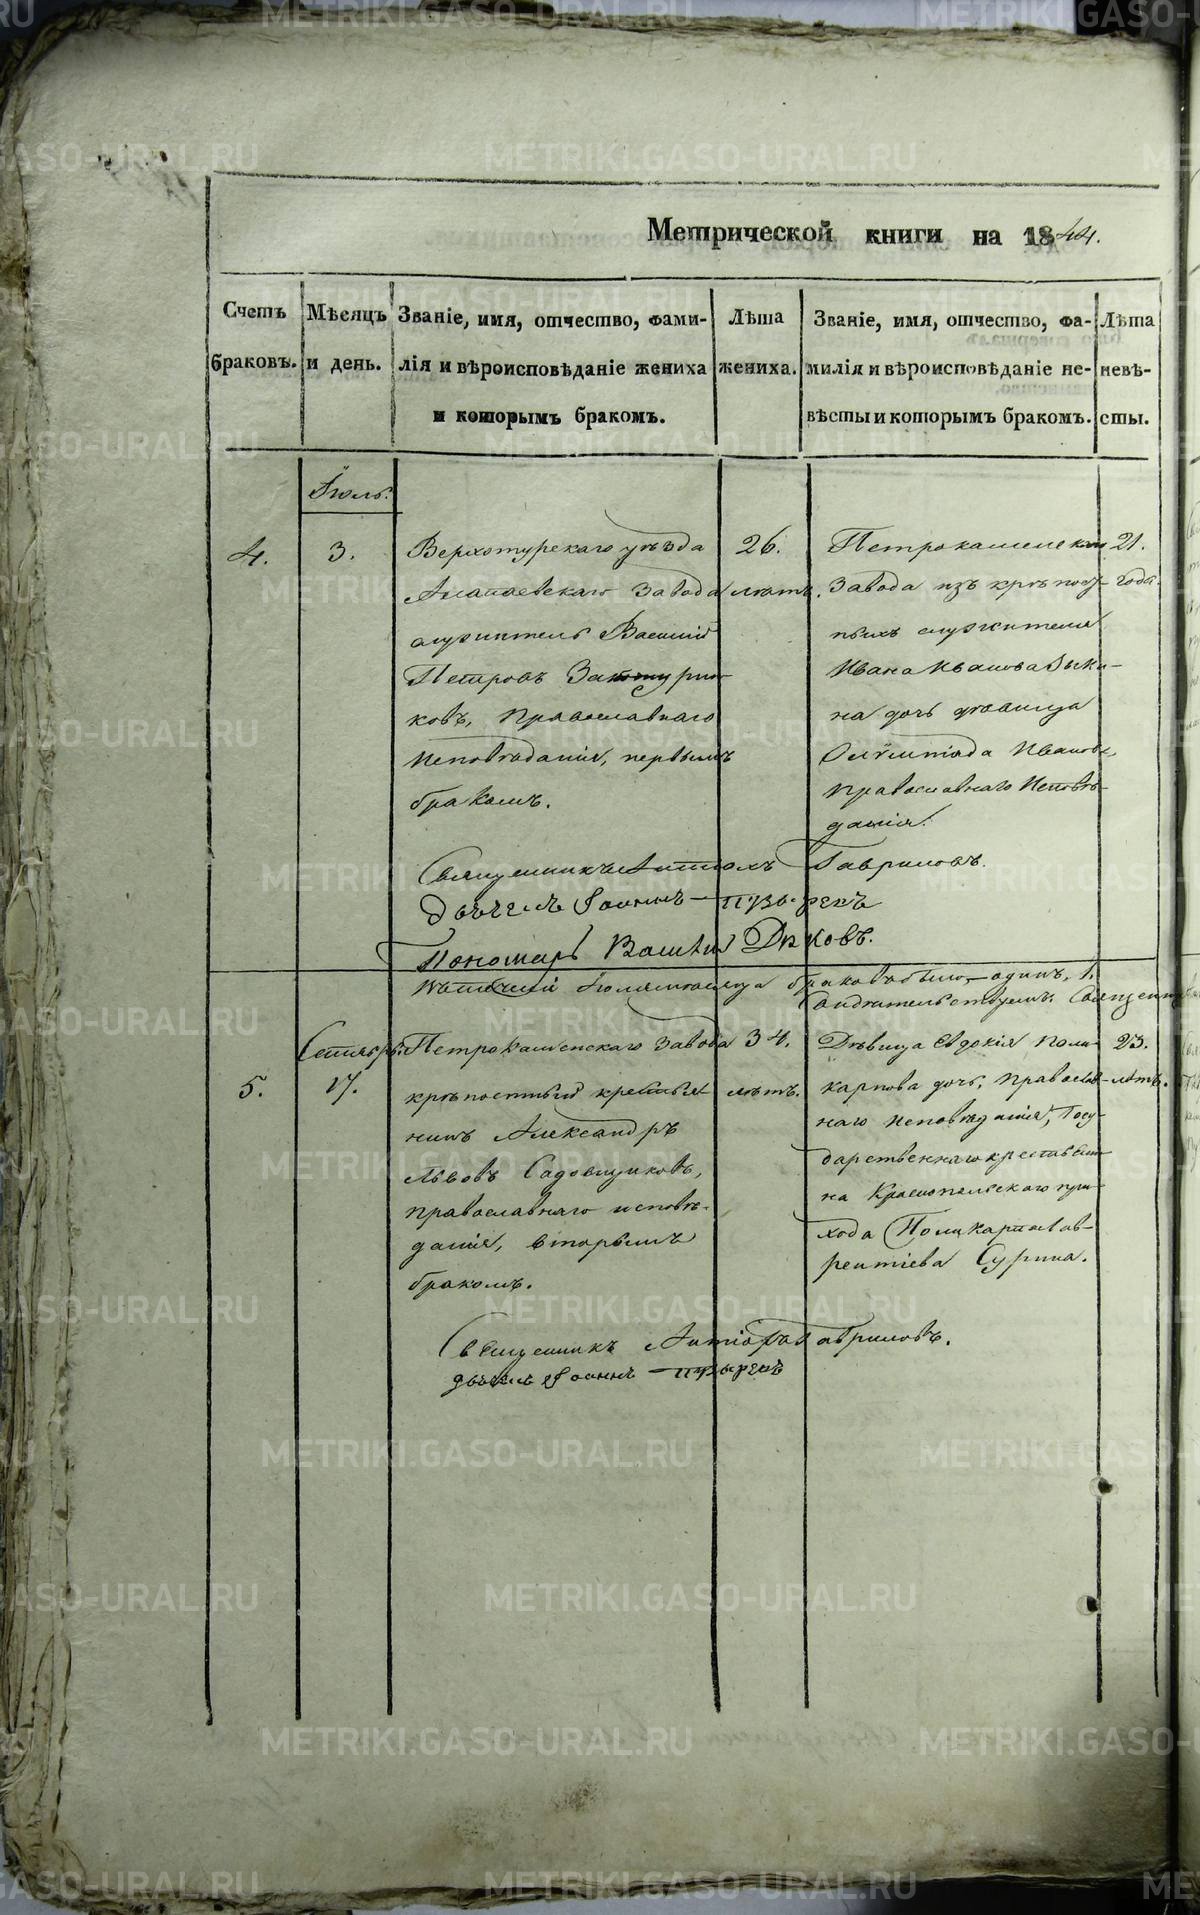 Метрической книги на 1844.
Счетъ браковъ.
Мѣсяцъ и день.
Званіе, имя, отчество, фами-
лія и вѣроисповѣданіе жениха
и которымъ бракомъ.
Лѣта
жениха.
Званіе, имя, отчество, фа-
милія и вѣроисповѣданіе не-
вѣсты и которымъ бракомъ.
Лѣта
невѣ-
сты.
Іюль.
4.
3.
Верхотурскаго уѣзда
Алапаевскаго Завода
служитель Василій
Петровъ
ковъ, Православнаго
Исповѣданія, первымъ
бракомъ.
26.
лѣтъ.
Петрокаменскаго
Завода изъ крѣпост-
ныхъ служителя
Ивана Иванова Зыки-
на дочь дѣвица
Олимпіада Иванова,
Православнаго Исповѣ-
данія.
21.
года.
Священникъ Гавриловъ.
Дьячекъ Іоаннъ Пузыревъ
Пономарь Василій Дьковъ.
Іюлѣ мѣсяцѣ браковъ было один, 1.
Свидѣтельствуемъ. Священникъ
Сентябрь.
5.
17.
Петрокаменскаго Завода
крѣпостный крестья-
нинъ Александръ
Львовъ Садовщиковъ,
православнаго исповѣ-
данія, вторымъ
бракомъ.
34.
лѣтъ.
Дѣвица Евдокія Поли-
карпова дочь, Православ-
наго исповѣданія, Госу-
дарственнаго крестьяни-
на Краснопольскаго при-
хода Поликарпа Лав-
рентіева Сурина.
23.
лѣтъ.
Священникъ Гавриловъ.
Дьячекъ Іоаннъ Пузыревъ
METRIKI.GASO-URAL.RU